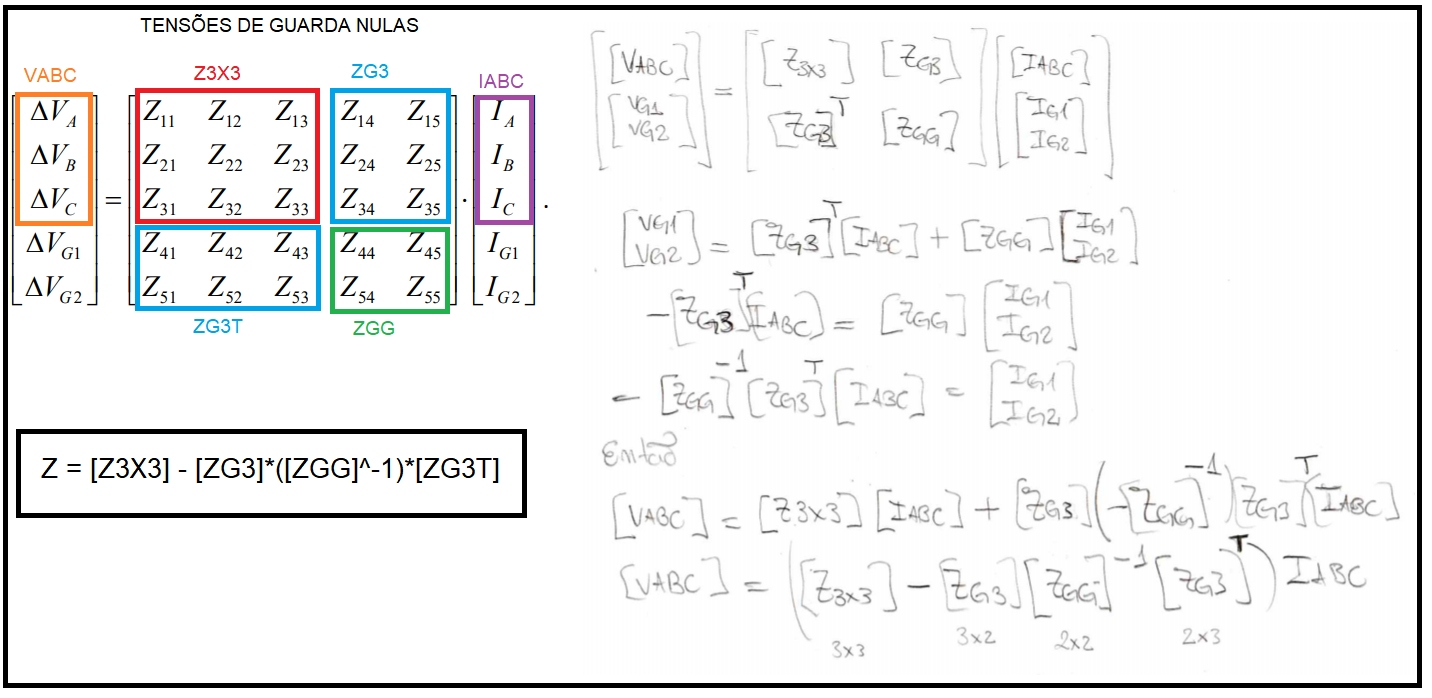 TENSÕES DE GUARDA NULAS
VABC Z3X3 ZG3 IABC
ΔV_A Z_11 Z_12 Z_13 Z_14 Z_15 I_A
ΔV_B Z_21 Z_22 Z_23 Z_24 Z_25 I_B
ΔV_C = Z_31 Z_32 Z_33 Z_34 Z_35 · I_C .
ΔV_G1 Z_41 Z_42 Z_43 Z_44 Z_45 I_G1
ΔV_G2 Z_51 Z_52 Z_53 Z_54 Z_55 I_G2
ZG3T ZGG
Z = [Z3X3] - [ZG3]*([ZGG]^-1)*[ZG3T]
[[VABC] [VG1 VG2]] = [[Z3x3] [ZG3] [ZG3]^T [ZGG]] [[IABC] [IG1 IG2]]
[VG1 VG2] = [ZG3]^T [IABC] + [ZGG] [IG1 IG2]
-[ZG3]^T [IABC] = [ZGG] [IG1 IG2]
- [ZGG]^-1 [ZG3]^T [IABC] = [IG1 IG2]
Então
[VABC] = [Z3x3] [IABC] + [ZG3] (-[ZGG]^-1) [ZG3]^T [IABC]
[VABC] = ([Z3x3] - [ZG3] [ZGG]^-1 [ZG3]^T) IABC
3x3 3x2 2x2 2x3